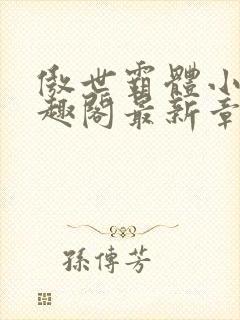 傲世霸體小
趣閣最新章
孫傳芳